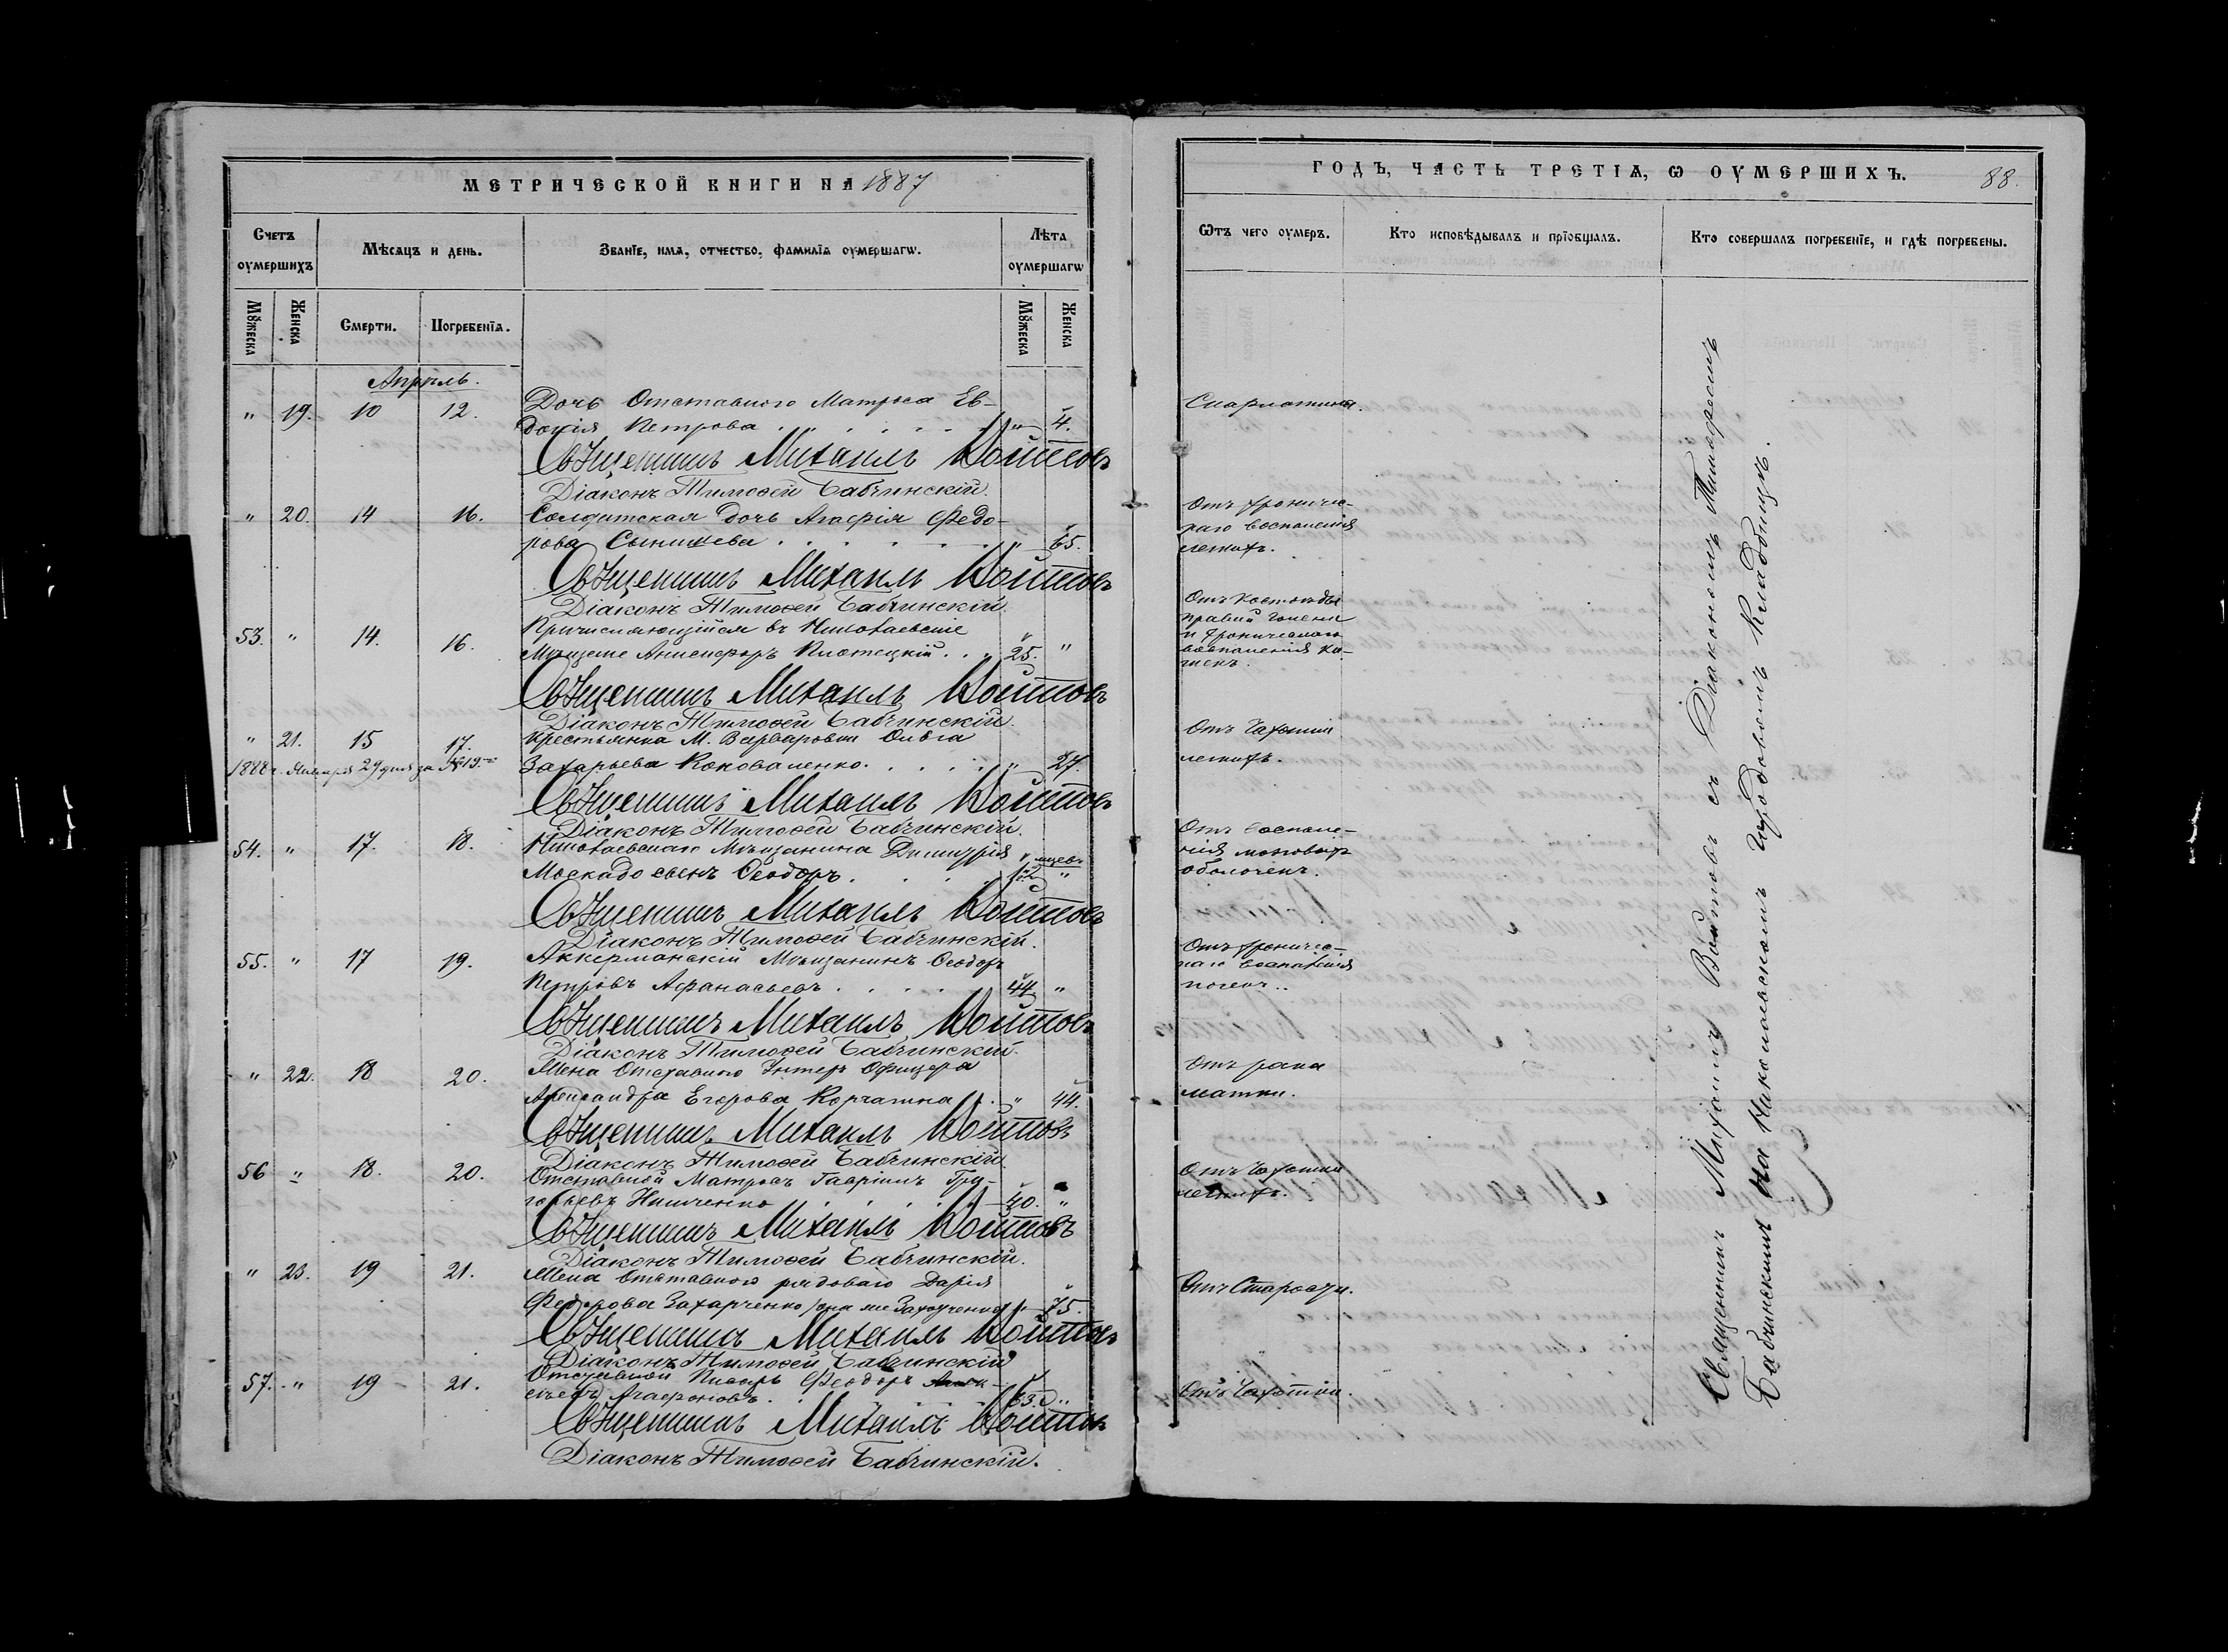 МЕТРИЧЕСКОЙ КНИГИ НА 1887
Счетъ оумершихъ
Мѣсяцъ и день.
Званїе, имѧ, отчество, фамилїа оумершагѡ.
Лѣта оумершагѡ
Мꙋжеска
Женска
Смерти.
Погребенїѧ.
Мꙋжеска
Женска
Апрѣль.
" 19. 10 12. Дочь Отставного Матроса Ев-
докія Петрова . . . . . . " 4.
Священникъ Михаилъ Войтовъ
Діаконъ Тимофей Бабчинскій.
" 20. 14 16. Солдатская дочь Агафія Федо-
рова . . . . . . " 65.
Священникъ Михаилъ Войтовъ
Діаконъ Тимофей Бабчинскій.
53. " 14. 16. Причисляющійся въ Николаевскіе
Мѣщане . . 25. "
Священникъ Михаилъ Войтовъ
Діаконъ Тимофей Бабчинскій.
" 21. 15 17. Крестьянка М. Варваровки Ольга
1888 г. Января 29 дня за № 19.
Захарьева Коноваленко. . . . . " 27.
Священникъ Михаилъ Войтовъ
Діаконъ Тимофей Бабчинскій.
54. " 17. 18. Николаевскаго Мѣщанина Димитрія
сынъ Ѳеодоръ . . . . "
Священникъ Михаилъ Войтовъ
Діаконъ Тимофей Бабчинскій.
55. " 17 19. Аккерманскій Мѣщанинъ Ѳеодоръ
Петровъ Афанасьевъ . . . . 44 "
Священникъ Михаилъ Войтовъ
Діаконъ Тимофей Бабчинскій.
" 22. 18 20. Жена Отставного Унтеръ Офицера
Александра Егорова Корчагина . " 44.
Священникъ Михаилъ Войтовъ
Діаконъ Тимофей Бабчинскій.
56 " 18. 20. Отставной Матросъ Гавріилъ Гри-
горьевъ . . . . . 40. "
Священникъ Михаилъ Войтовъ
Діаконъ Тимофей Бабчинскій.
" 23. 19 21. Жена Отставного рядового Дарія
Федорова Захарченко " 75.
Священникъ Михаилъ Войтовъ
Діаконъ Тимофей Бабчинскій
57. " 19 21. Отставной Писарь Феодоръ
Агафоновъ . . . . 63. "
Священникъ Михаилъ Войтовъ
Діаконъ Тимофей Бабчинскій.
ГОДЪ, ЧАСТЬ ТРЕТІѦ, Ѡ ОУМЕРШИХЪ. 88.
Ѿтъ чего оумеръ.
Кто исповѣдывалъ и прїобщалъ.
Кто совершалъ погребенїе, и гдѣ погребены.
Скарлатины.
Отъ хрониче-
скаго воспаленія
легкихъ.
Отъ костоѣды
правой голени
и хроническаго
воспаленія ки-
шекъ.
Отъ Чахотки
легкихъ.
Отъ воспале-
нія мозговыхъ
оболочекъ.
Отъ хроничес-
каго воспаленія
почекъ.
Отъ рака
матки.
Отъ Чахотки
легкихъ.
Отъ Старости.
Отъ Чахотки.
Священникъ Михаилъ Войтовъ съ Діакономъ Тимофеемъ
Бабчинскимъ на Николаевскомъ Городовомъ Кладбищѣ.